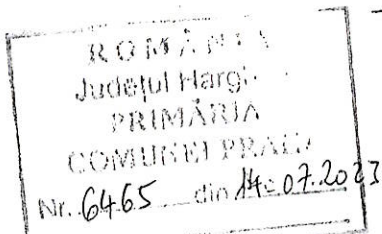 ROMÂNIA
Județul Harghi
PRIMĂRIA
COMUNEI PRAID
Nr. 6465 din 14.07.2023